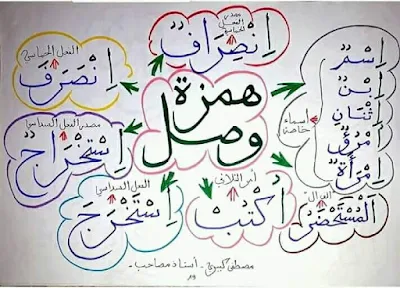 هَمْزَة
وَصْل
اِسْمٌ
اِبْنٌ
اِثْنَانِ
اِمْرُؤٌ
اِمْرَأَةٌ
أسماء
خاصة
مصدر
الفعل
الخماسي
اِنْصِرَافٌ
الفعل الخماسي
اِنْصَرَفَ
مصدر الفعل السداسي
اِسْتِخْرَاجٌ
الفعل السداسي
اِسْتَخْرَجَ
أمر الثلاثي
اُكْتُبْ
اَلْمُسْتَحْضَرُ
مصطفى - أستاذ مصاحب -